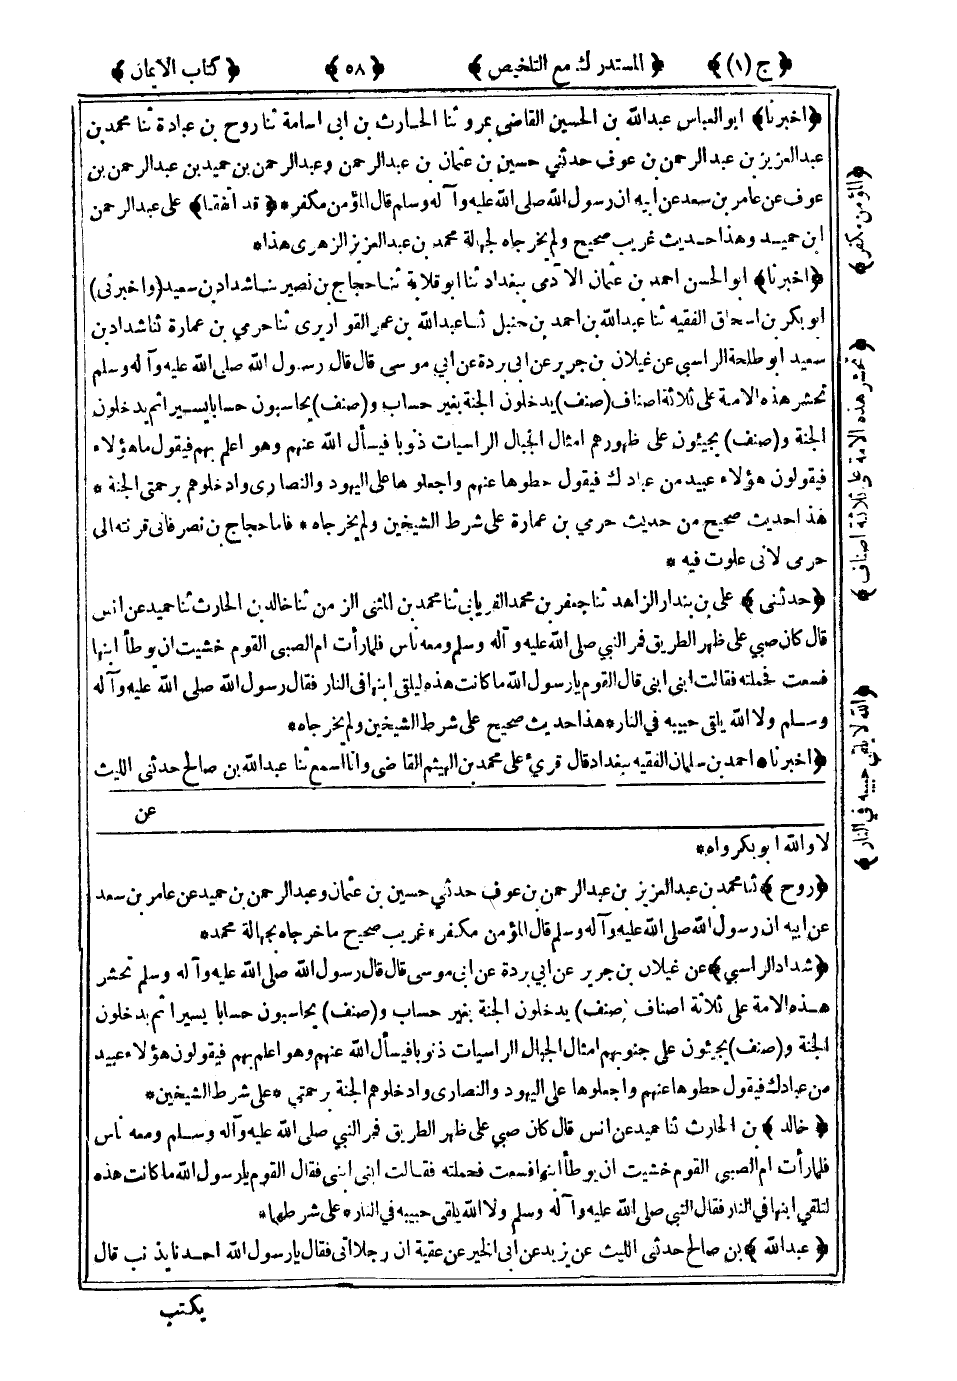 ﴿ كتاب الايمان ﴾ ﴿ ٥٨ ﴾ ﴿ المستدرك مع التلخيص ﴾ ﴿ ج (١) ﴾
﴿ اخبرنا ﴾ ابو العباس عبدالله بن الحسين القاضى بمرو ثنا الحارث بن ابى اسامة ثنا روح بن عبادة ثنا محمد بن
عبدالعزيز بن عبدالرحمن بن عوف حدثني حسين بن عثمان بن عبدالرحمن وعبدالرحمن بن حميد بن عبدالرحمن بن
عوف عن عامر بن سعد عن ابيه ان رسول الله صلى الله عليه وآله وسلم قال المؤمن مكفر * ﴿ قد اتفقا ﴾ على عبدالرحمن
ابن حميد وهذا حديث غريب صحيح ولم يخرجاه لجهالة محمد بن عبدالعزيز الزهرى هذا *
﴿ اخبرنا ﴾ ابو الحسن احمد بن عثمان الآدمى ببغداد ثنا ابو قلابة ثنا حجاج بن نصير ثنا شداد بن سعيد (واخبرنى)
ابو بكر بن اسحاق الفقيه ثنا عبدالله بن احمد بن حنبل ثنا عبدالله بن عمر القواريرى ثنا حرمي بن عمارة ثنا شداد بن
سعيد ابو طلحة الراسبي عن غيلان بن جرير عن ابى بردة عن ابي موسى قال قال رسول الله صلى الله عليه وآله وسلم
تحشر هذه الامة على ثلاثة اصناف (صنف) يدخلون الجنة بغير حساب و(صنف) يحاسبون حسابا يسيرا ثم يدخلون
الجنة و(صنف) يجيئون على ظهورهم امثال الجبال الراسيات ذنوبا فيسأل الله عنهم وهو اعلم بهم فيقول ما هؤلاء
فيقولون هؤلاء عبيد من عبادك فيقول حطوها عنهم واجعلوها على اليهود والنصارى وادخلوهم برحمتى الجنة *
هذا حديث صحيح من حديث حرمي بن عمارة على شرط الشيخين ولم يخرجاه * فاما حجاج بن نصر فانى قرنته الى
حرمى لانى علوت فيه *
﴿ حدثنى ﴾ على بن بندار الزاهد ثنا جعفر بن محمد الفريابى ثنا محمد بن المثنى الزمن ثنا خالد بن الحارث ثنا حميد عن انس
قال كان صبي على ظهر الطريق فمر النبي صلى الله عليه وآله وسلم ومعه ناس فلما رأت ام الصبى القوم خشيت ان يوطأ ابنها
فسعت فحملته فقالت ابنى ابنى قال القوم يا رسول الله ما كانت هذه ليلقى ابنها فى النار فقال رسول الله صلى الله عليه وآله
وسلم ولا الله يلقى حبيبه في النار * هذا حديث صحيح على شرط الشيخين ولم يخرجاه *
﴿ اخبرنا ﴾ احمد بن سلمان الفقيه ببغداد قال قرئ على محمد بن الهيثم القاضى وانا اسمع ثنا عبدالله بن صالح حدثنى الليث
عن
لا والله ابو بكر واه *
﴿ روح ﴾ ثنا محمد بن عبدالعزيز بن عبدالرحمن بن عوف حدثني حسين بن عثمان وعبدالرحمن بن حميد عن عامر بن سعد
عن ابيه ان رسول الله صلى الله عليه وآله وسلم قال المؤمن مكفر * غريب صحيح ما خرجاه بجهالة محمد *
﴿ شداد الراسبي ﴾ عن غيلان بن جرير عن ابي بردة عن ابى موسى قال قال رسول الله صلى الله عليه وآله وسلم تحشر
هذه الامة على ثلاثة اصناف (صنف) يدخلون الجنة بغير حساب و(صنف) يحاسبون حسابا يسيرا ثم يدخلون
الجنة و(صنف) يجيئون على جنوبهم امثال الجبال الراسيات ذنوبا فيسأل الله عنهم وهو اعلم بهم فيقولون هؤلاء عبيد
من عبادك فيقول حطوها عنهم واجعلوها على اليهود والنصارى وادخلوهم الجنة برحمتي * على شرط الشيخين *
﴿ خالد ﴾ بن الحارث ثنا حميد عن انس قال كان صبي على ظهر الطريق فمر النبي صلى الله عليه وآله وسلم ومعه ناس
فلما رأت ام الصبى القوم خشيت ان يوطأ ابنها فسعت فحملته فقالت ابنى ابنى فقال القوم يا رسول الله ما كانت هذه
لتلقي ابنها في النار فقال النبي صلى الله عليه وآله وسلم ولا الله يلقى حبيبه في النار * على شرطهما *
﴿ عبدالله ﴾ بن صالح حدثنى الليث عن زيد عن ابى الخير عن عقبة ان رجلا اتى فقال يا رسول الله احدنا يذنب قال
يكتب
﴿ المؤمن مكفر ﴾
﴿ تحشر هذه الامة على ثلاثة اصناف ﴾
﴿ الله لا يلقي حبيبه في النار ﴾